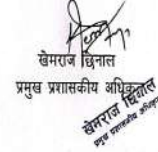 खेमराज छिनाल
प्रमुख प्रशासकीय अधिकृत
खेमराज छिनाल
प्रमुख प्रशासकीय अधिकृत